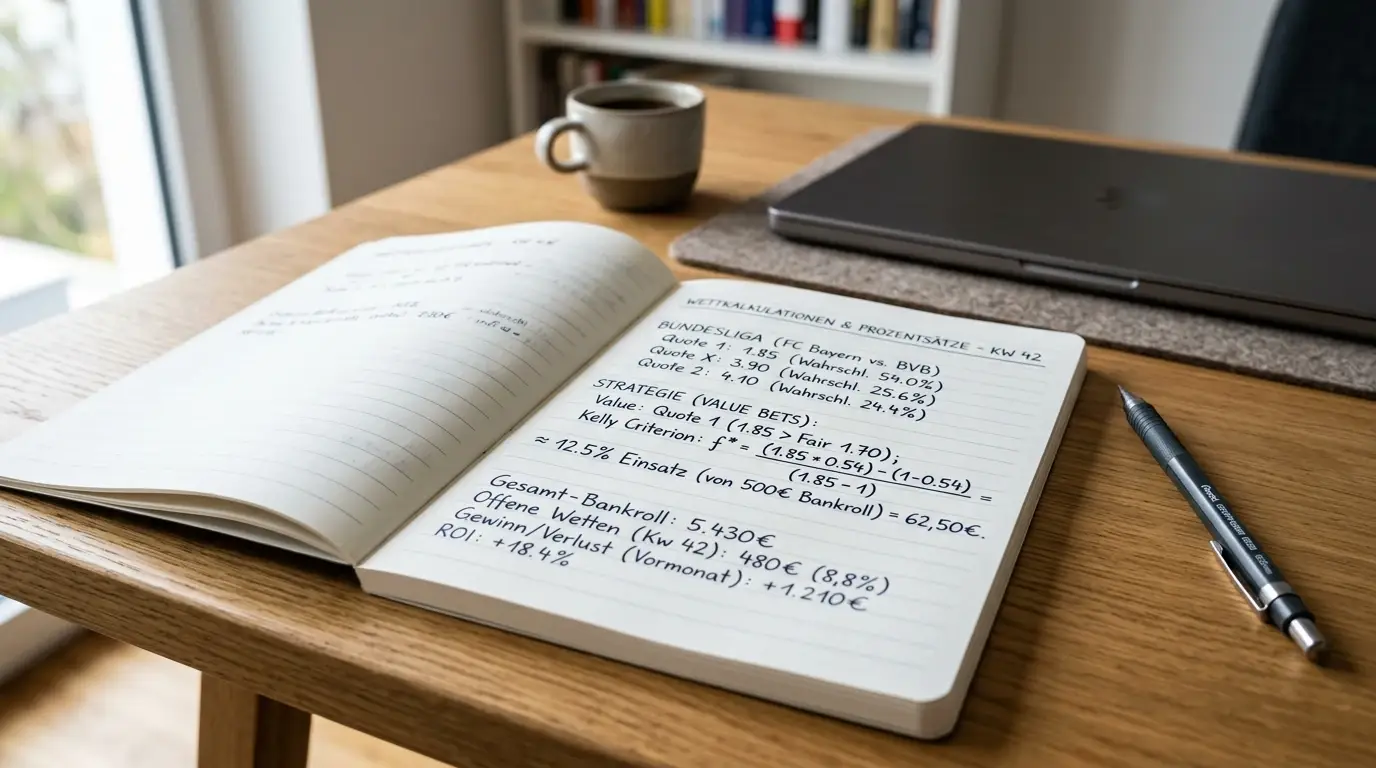 WETTKALKULATIONEN & PROZENTSÄTZE - KW 42
BUNDESLIGA (FC Bayern vs. BVB)
Quote 1: 1.85 (Wahrschl. 54.0%)
Quote X: 3.90 (Wahrschl. 25.6%)
Quote 2: 4.10 (Wahrschl. 24.4%)
STRATEGIE (VALUE BETS):
Value: Quote 1 (1.85 > Fair 1.70);
Kelly Criterion: f* = (1.85 * 0.54) - (1-0.54) / (1.85 - 1) =
≈ 12.5% Einsatz (von 500€ Bankroll) = 62,50€.
Gesamt-Bankroll: 5.430€
Offene Wetten (KW 42): 480€ (8,8%)
Gewinn/Verlust (Vormonat): +1.210€
ROI: +18.4%